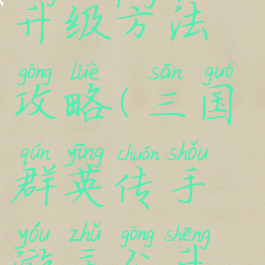 升级方法
gōng lüè sān guó
攻略(三国
qún yīng chuán shǒu
群英传手
yóu zhǔ gōng shēng
游主公升